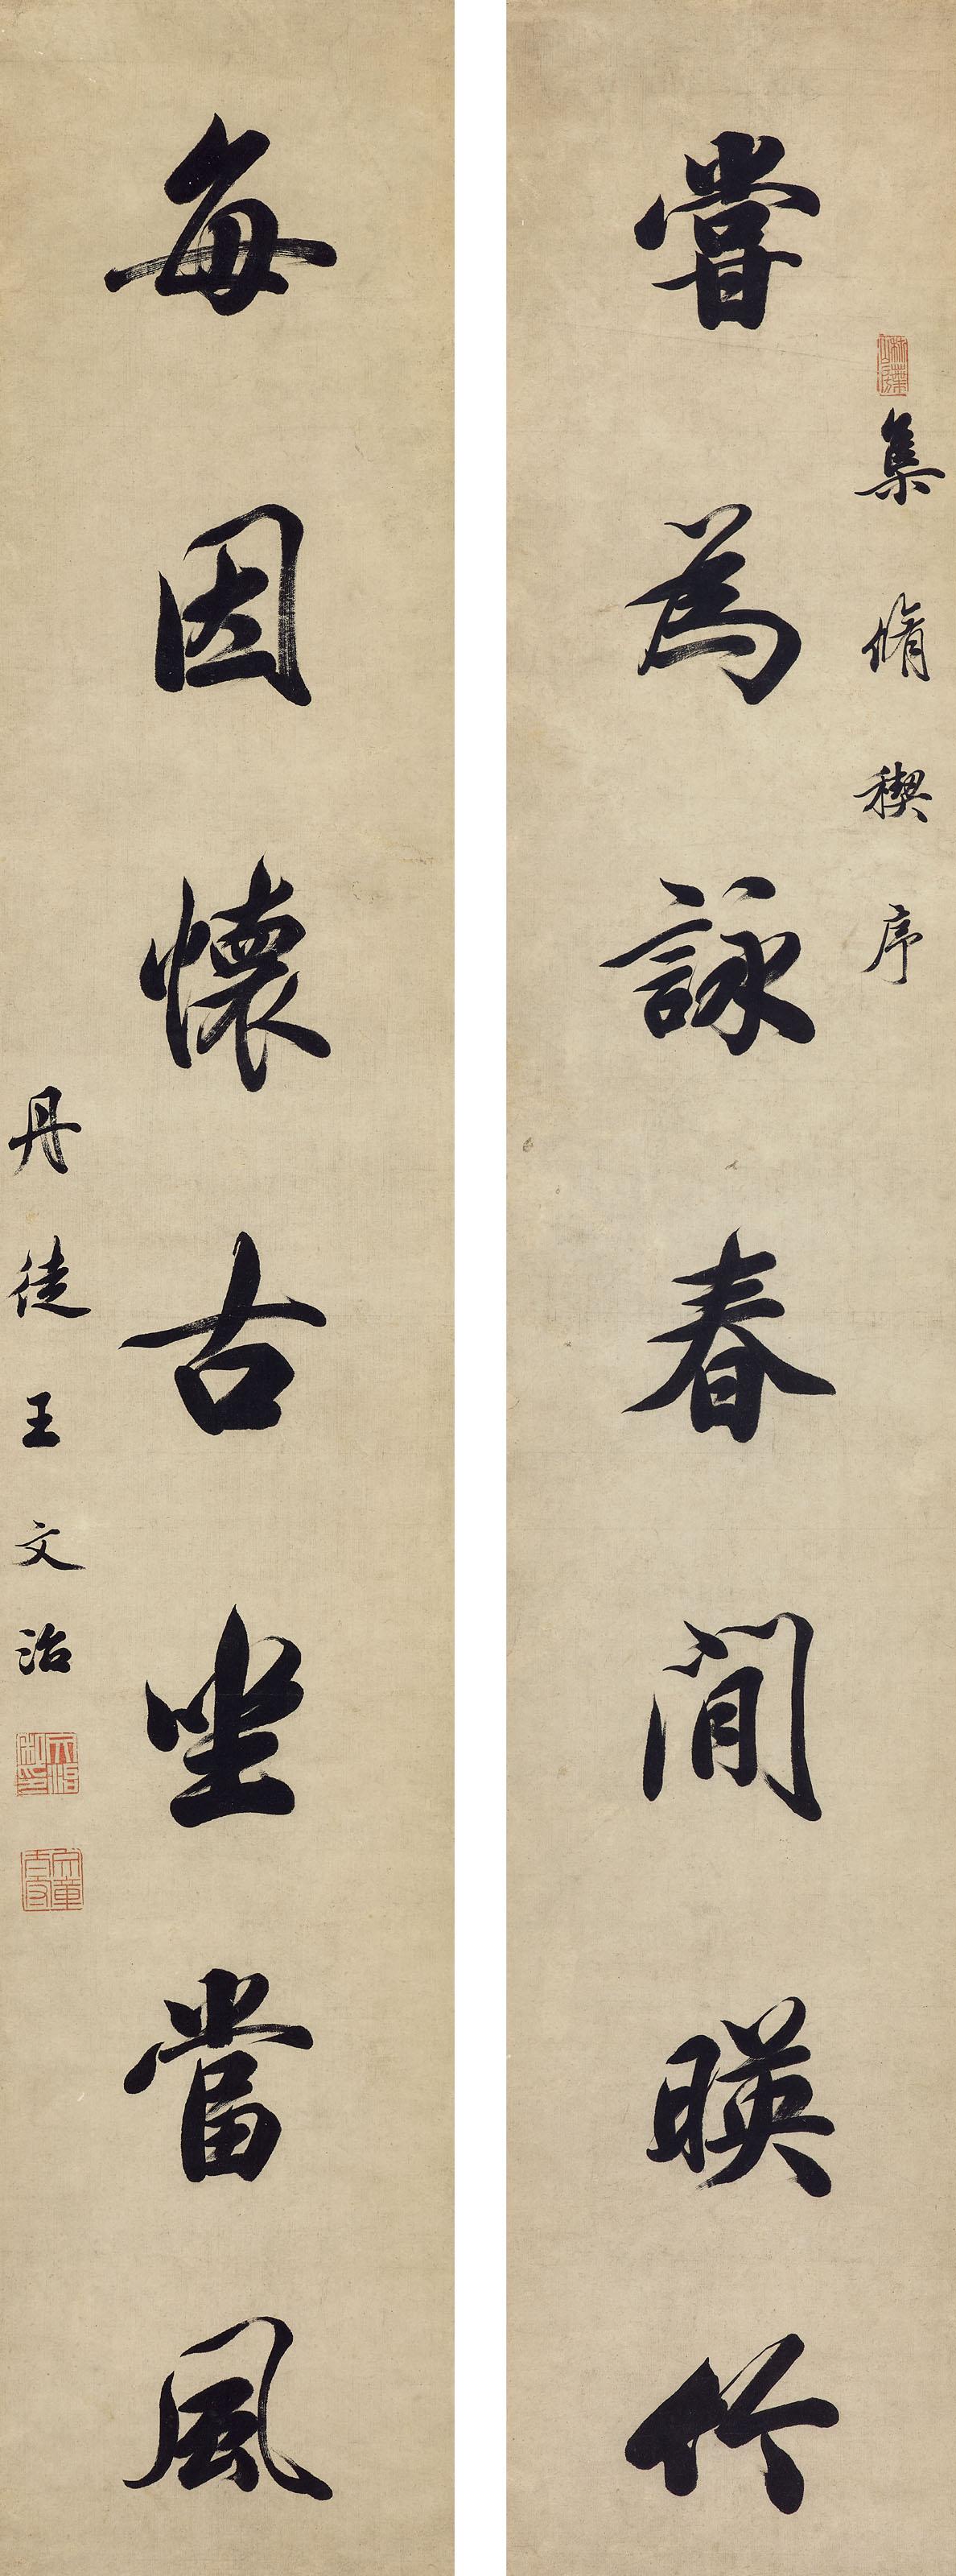 集脩稧序
嘗為詠春閒暎竹
每因懷古坐當風
丹徒王文治
文治私印